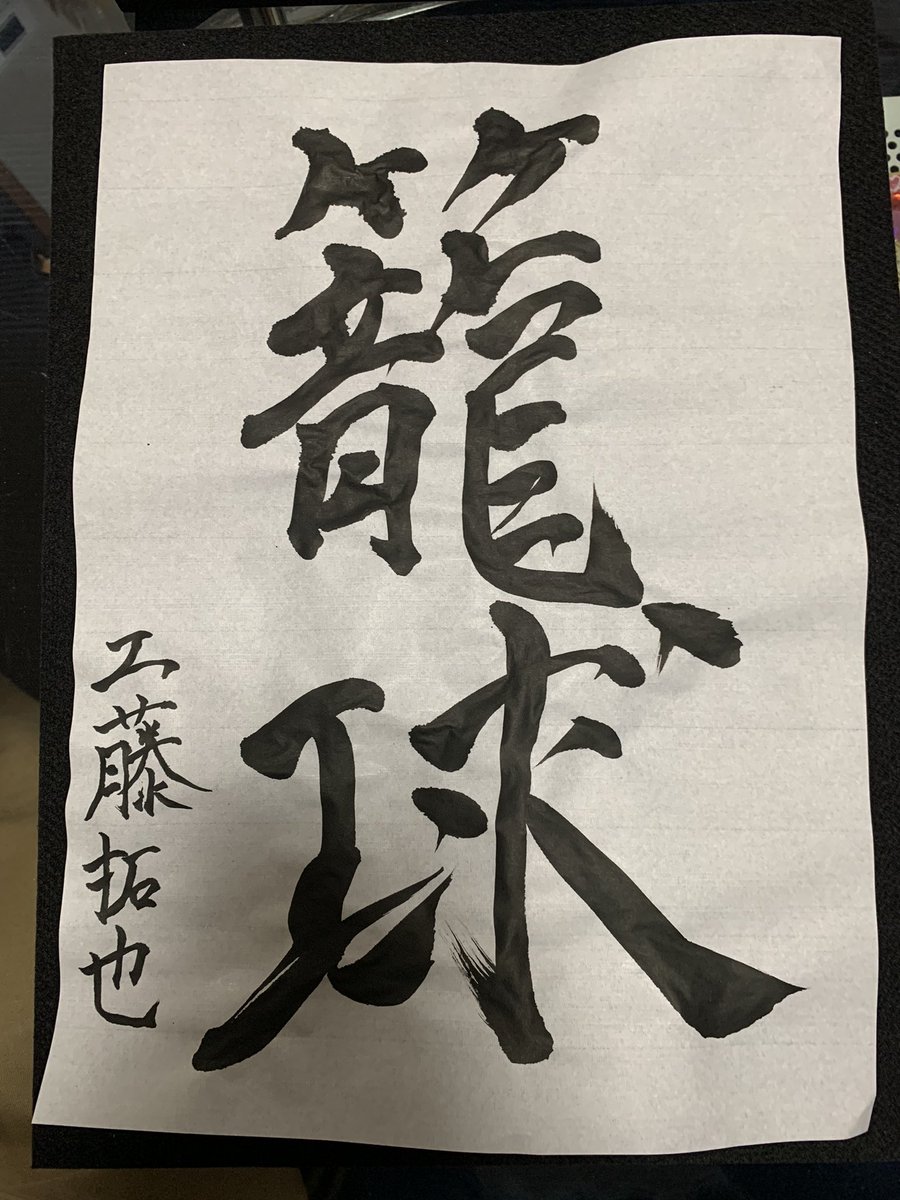 籠球
工藤拓也